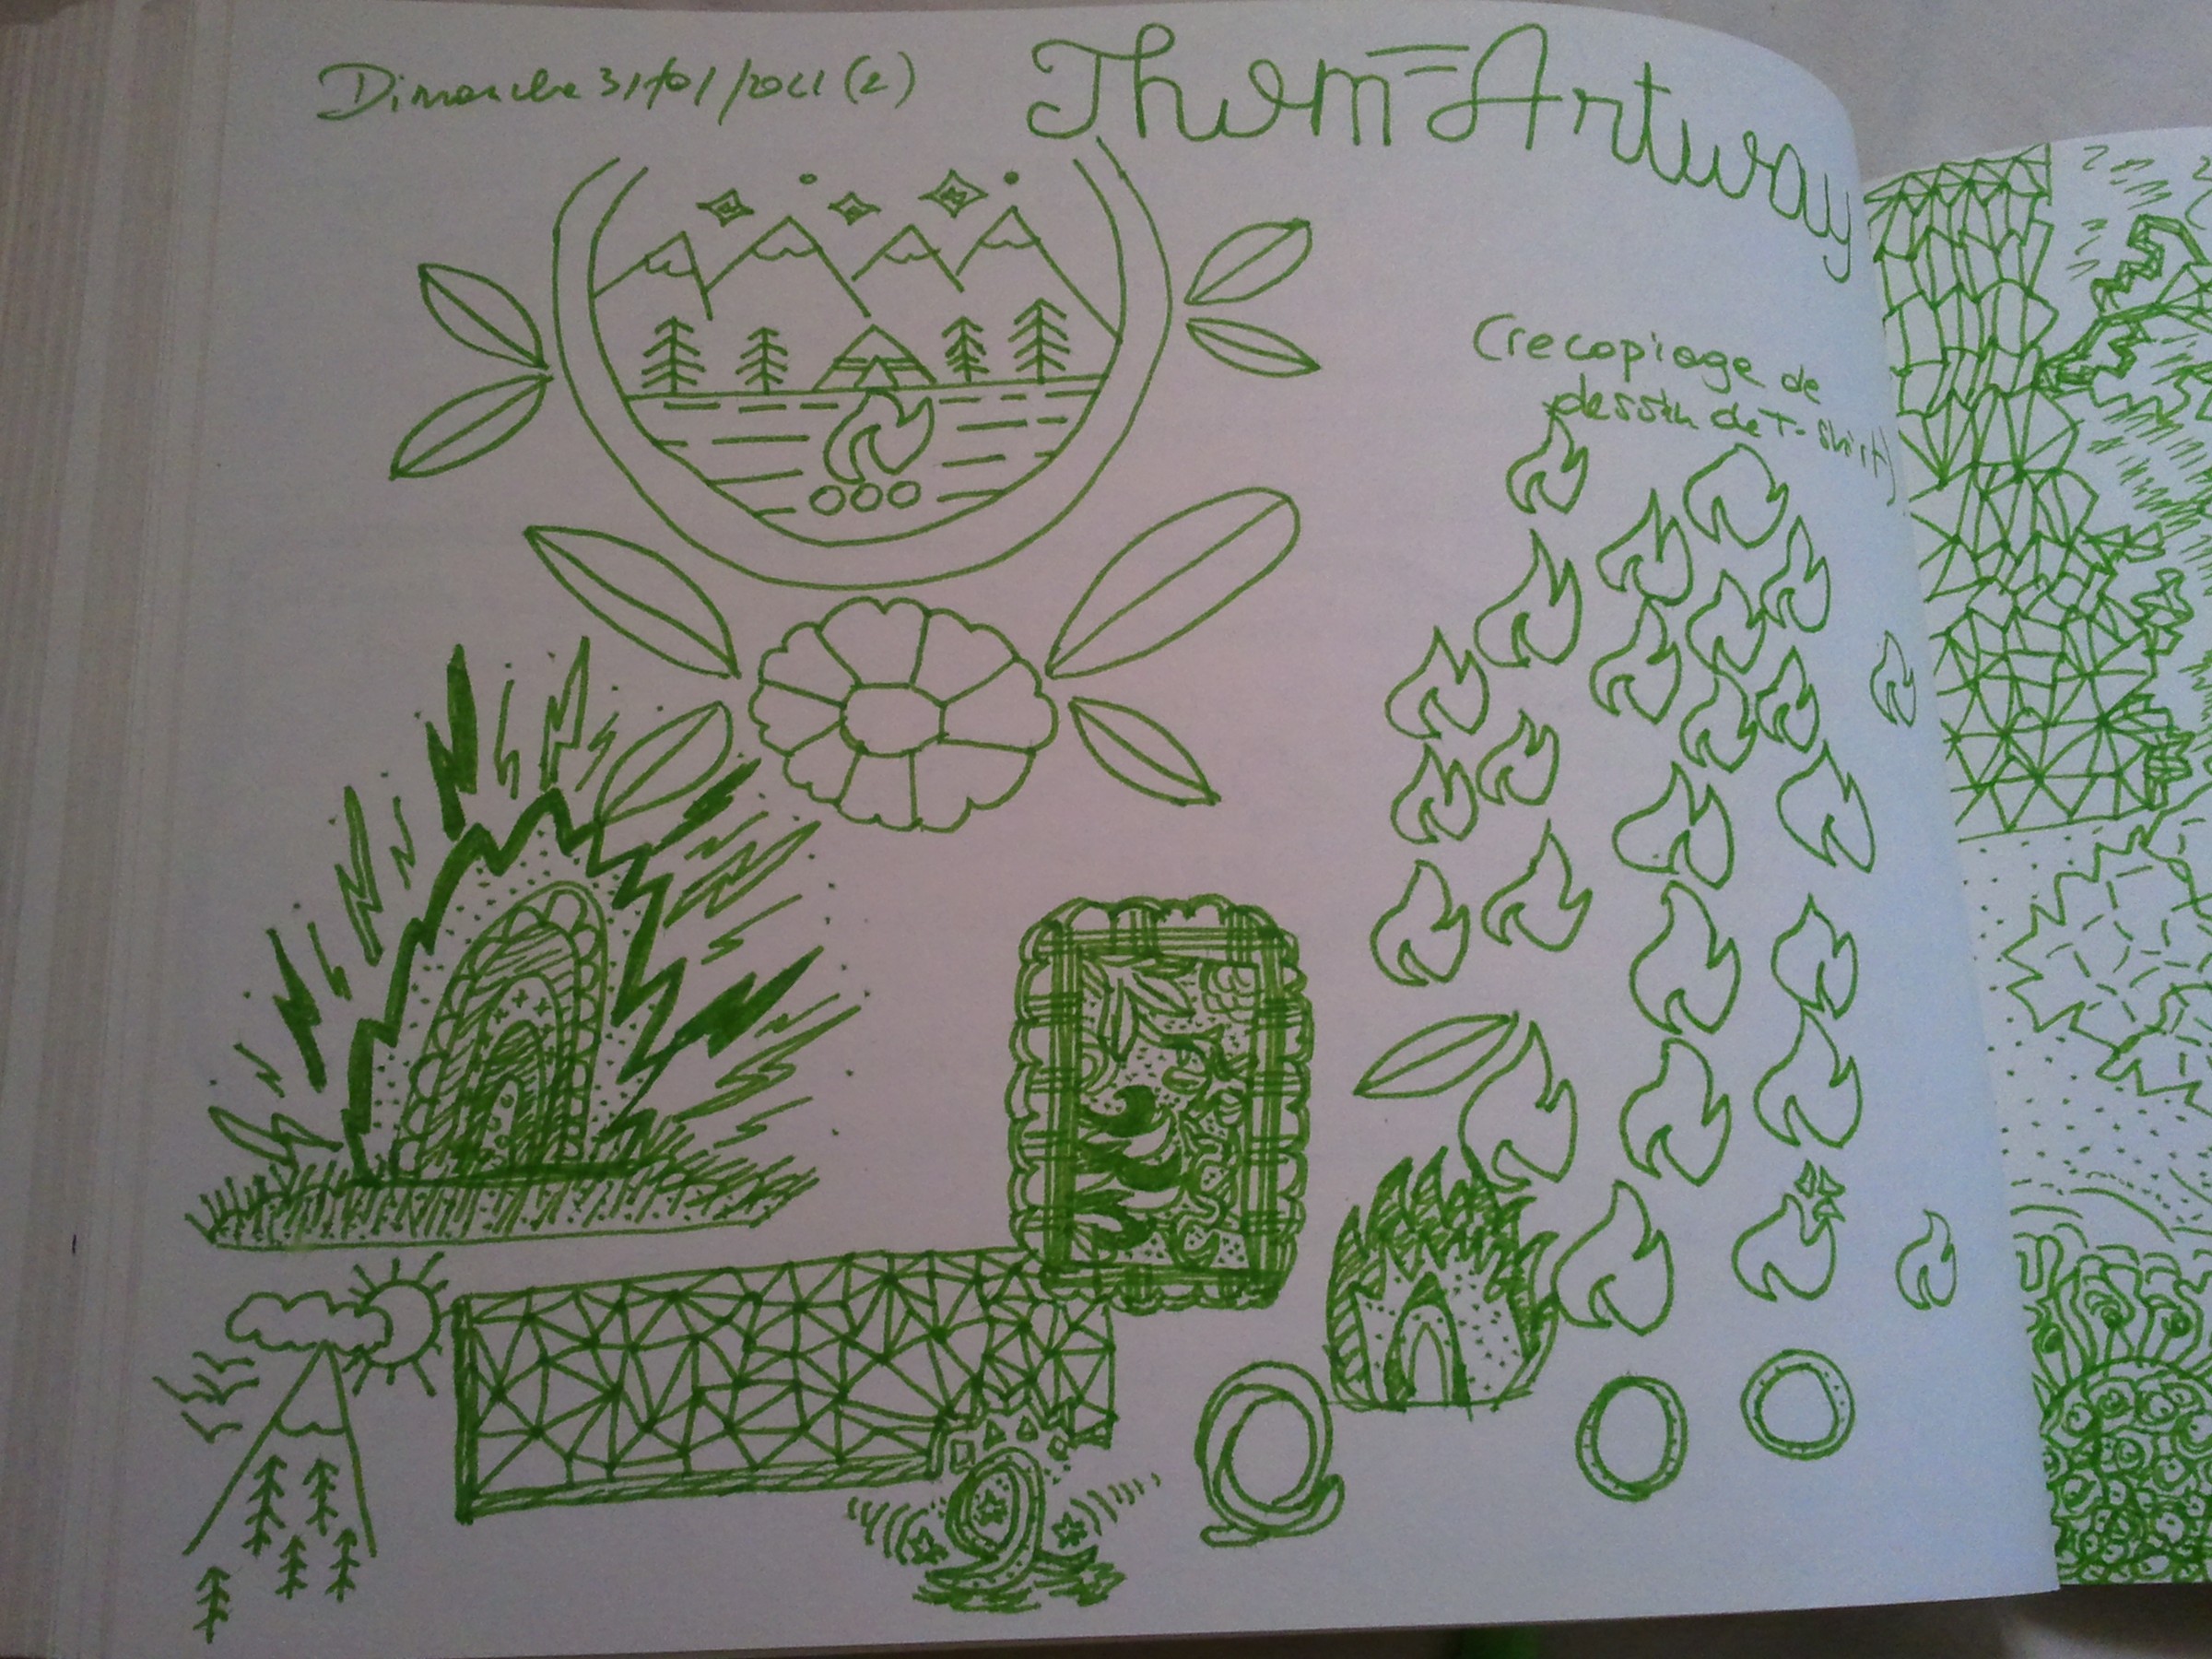 Dimanche 31/01/2021 (2)
Thom=Artway
(recopiage de
dessin de T-shirt)